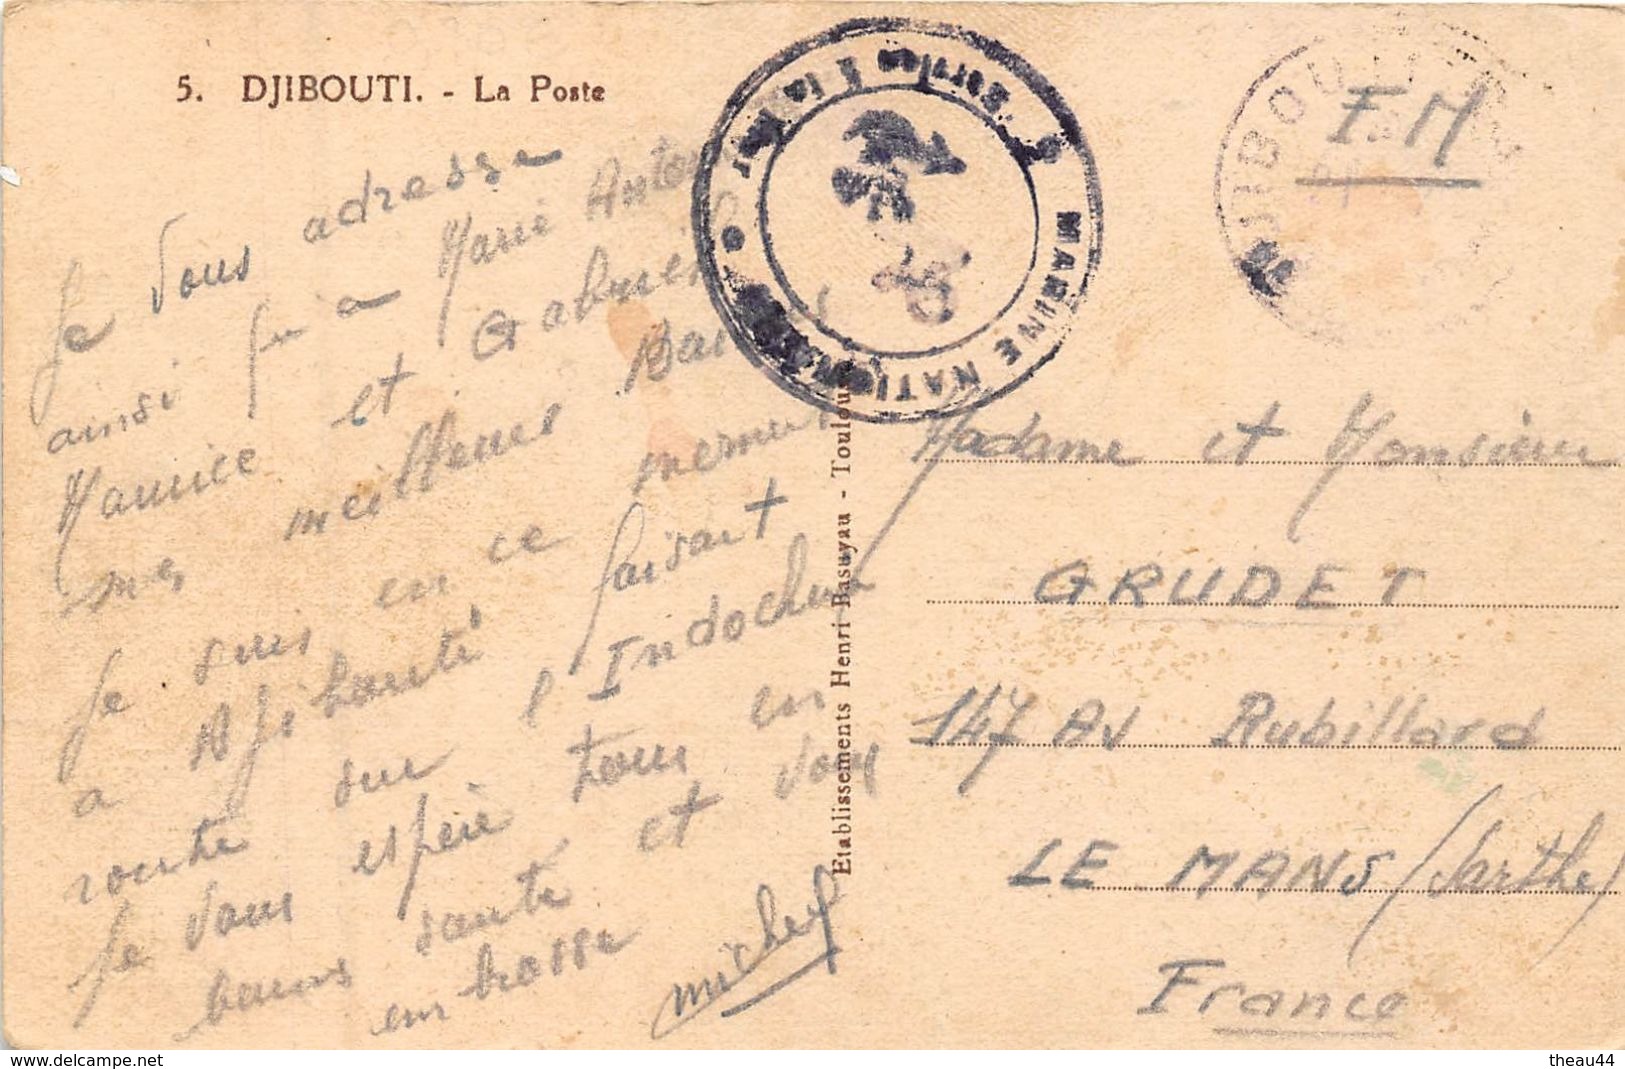 5. DJIBOUTI. - La Poste
Je vous adresse
ainsi qu'a Marie Antoi
Maurice et Gabriel
mes meilleurs Baisers
Je suis en ce moment
a Djibouti faisant
route sur l'Indochine
Je vous espère tous en
bonne santé et vous
embrasse
Michel
Etablissements Henri Basuyau - Toulouse
MARINE NATIONALE
Service à la Mer
DJIBOUTI
F.M
Madame et Monsieur
GRUDET
147 AV Rubillard
LE MANS (Sarthe)
France
www.delcampe.net
theau44